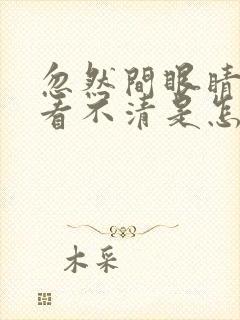 忽然間眼睛
看不清是怎
木采